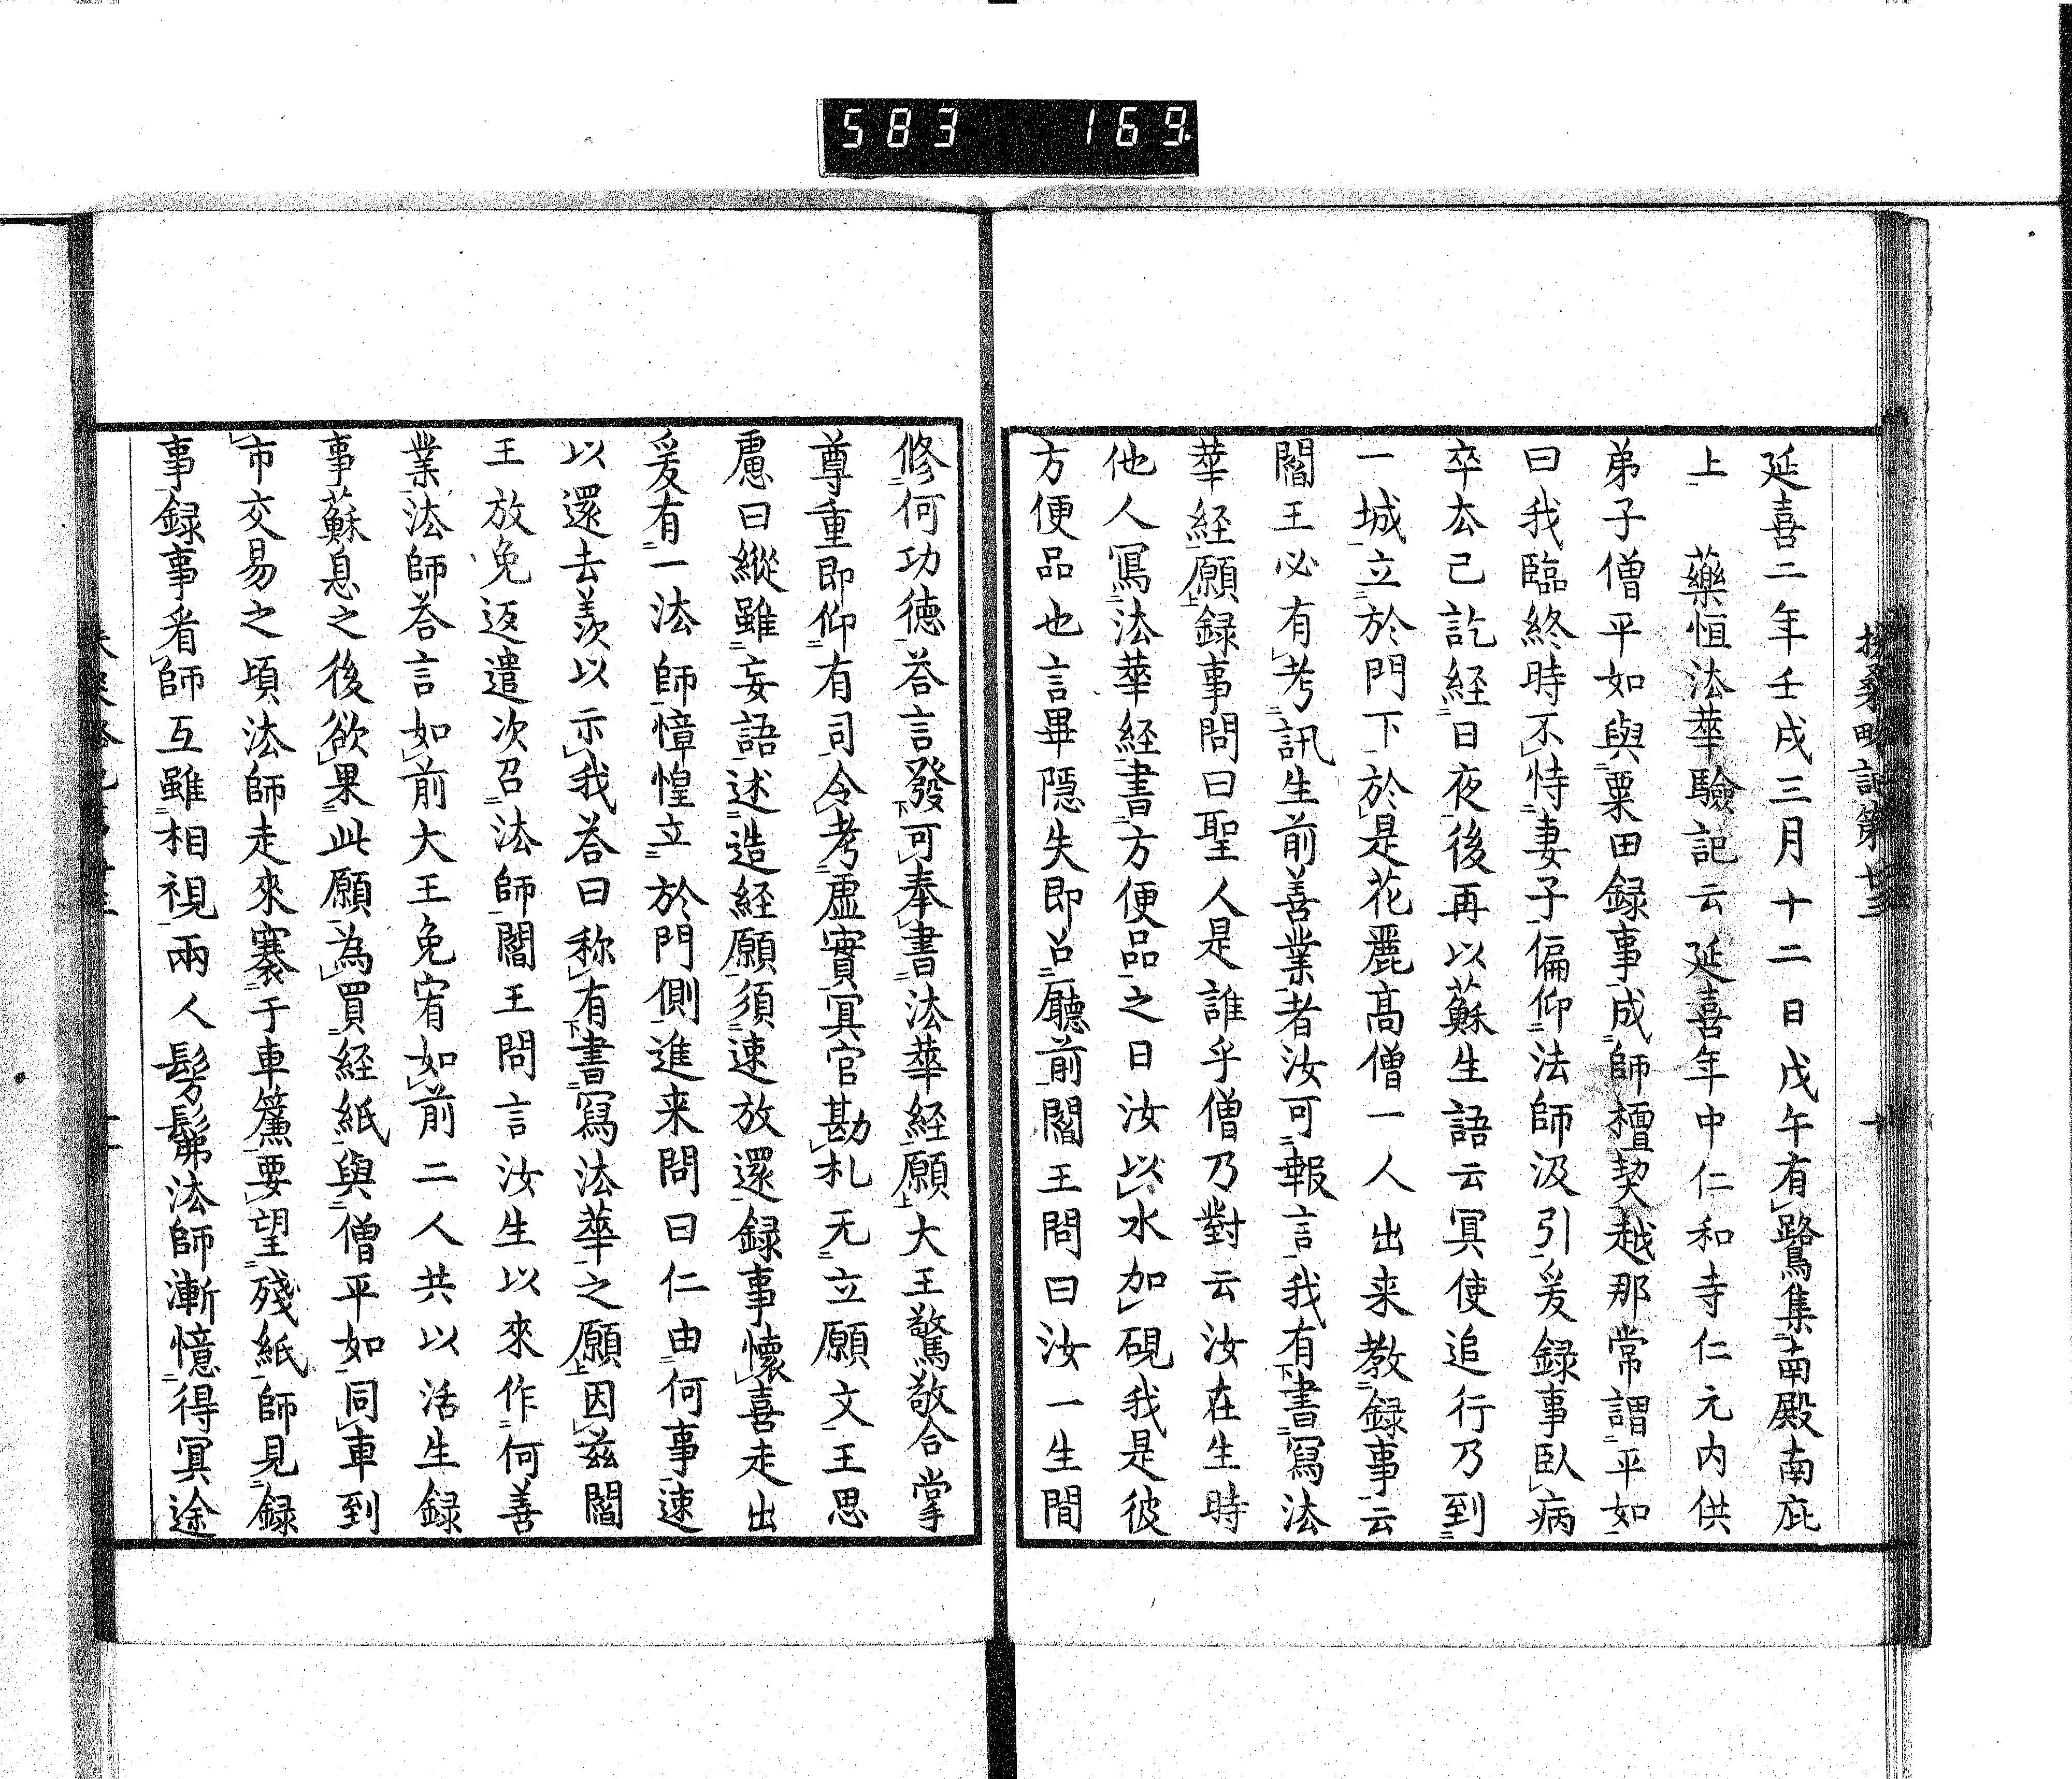 583 169
扶桑略記第廿三 十
延喜二年壬戌三月十二日戊午有鷺集南殿南庇
上 藥恒法華驗記云延喜年中仁和寺仁元内供
弟子僧平如與粟田録事成師檀契越那常謂平如
曰我臨終時不恃妻子偏仰法師汲引爰録事臥病
卒去已訖経日夜後再以蘇生語云冥使追行乃到
一城立於門下於是花麗高僧一人出来教録事云
閻王必有考訊生前善業者汝可報言我有書寫法
華経願録事問曰聖人是誰乎僧乃對云汝在生時
他人寫法華経書方便品之日汝以水加硯我是彼
方便品也言畢隠失即召廳前閻王問曰汝一生間
修何功德荅言發可奉書法華経願大王驚敬合掌
尊重即仰有司令考虚實冥官勘札无立願文王思
慮曰縱雖妄語述造経願須速放還録事懐喜走出
爰有一法師慞惶立於門側進来問曰仁由何事速
以還去羨以示我荅曰称有書寫法華之願因茲閻
王放免返遣次召法師閻王問言汝生以來作何善
業法師荅言如前大王免宥如前二人共以活生録
事蘇息之後欲果此願為買経紙與僧平如同車到
市交易之頃法師走來褰于車簾要望残紙師見録
事録事看師互雖相視兩人髣髴法師漸憶得冥途